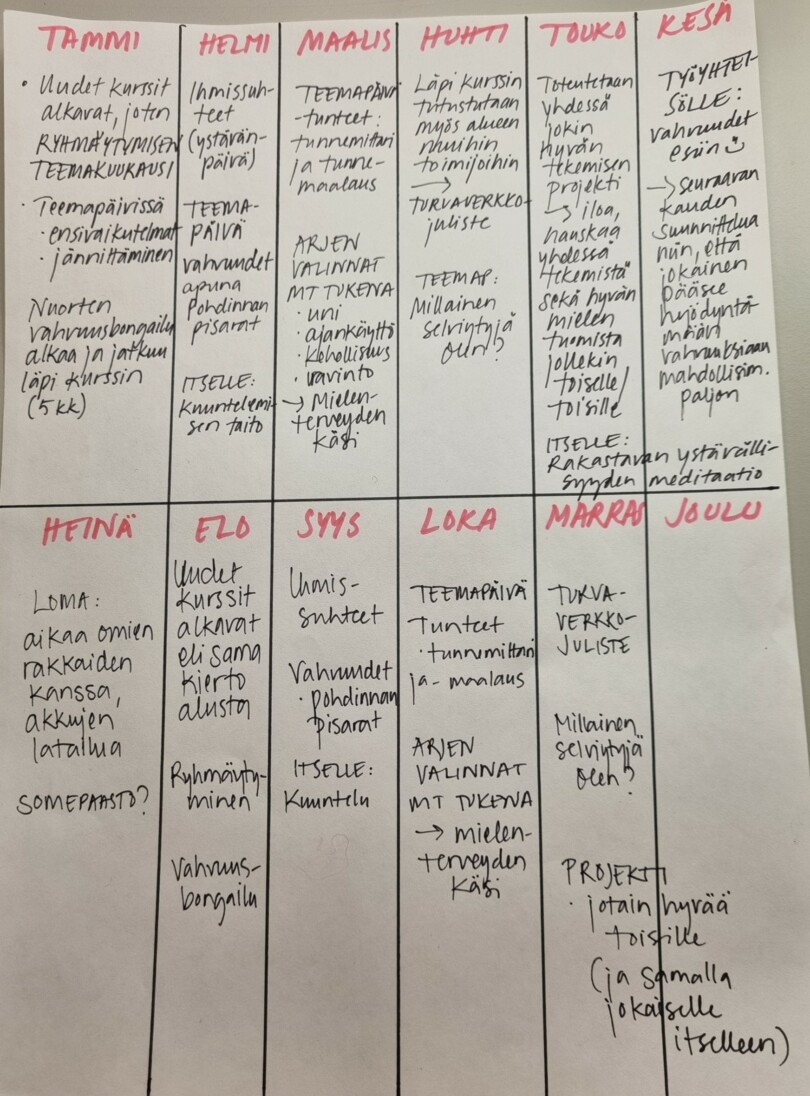 TAMMI
• Uudet kurssit
alkavat, joten
RYHMÄYTYMISEN
TEEMAKUUKAUSI
• Teemapäivissä
• ensivaikutelmat
• jännittäminen
Nuorten
vahvuusbongailu
alkaa ja jatkuu
läpi kurssin
(5 kk)
HELMI
Ihmissuh-
teet
(ystävän-
päivä)
TEEMA-
PÄIVÄ
vahvuudet
apuna
Pohdinnan
pisarat
ITSELLE:
Kuuntelemi-
sen taito
MAALIS
TEEMAPÄIVÄ
-tunteet:
tunnemittari
ja tunne-
maalaus
ARJEN
VALINNAT
MT TUKENA
• uni
• ajankäyttö
• kohollisuus
• ravinto
→ Mielen-
terveyden
käsi
HUHTI
Läpi kurssin
tutustutaan
myös alueen
muihin
toimijoihin
→
TURVAVERKKO-
juliste
TEEMAP:
Millainen
selviytyjä
olen?
TOUKO
Toteutetaan
yhdessä
jokin
hyvän
tekemisen
projekti
→ iloa,
hauskaa
yhdessä
tekemistä
sekä hyvän
mielen
tuomista
jollekin
toiselle/
toisille
ITSELLE:
Rakastavan ystävälli-
syyden meditaatio
KESÄ
TYÖYHTEI-
SÖLLE:
vahvuudet
esiin ☺
→ seuraavan
kauden
suunnittelua
niin, että
jokainen
pääsee
hyödyntä-
mään
vahvuuksiaan
mahdollisim.
paljon
HEINÄ
LOMA:
aikaa omien
rakkaiden
kanssa,
akkujen
latailua
SOMEPAASTO?
ELO
Uudet
kurssit
alkavat
eli sama
kierto
alusta
Ryhmäyty-
minen
Vahvuus-
bongailu
SYYS
Ihmis-
suhteet
Vahvuudet
• pohdinnan
pisarat
ITSELLE:
Kuuntelu
LOKA
TEEMAPÄIVÄ
Tunteet
• tunnemittari
ja -maalaus
ARJEN
VALINNAT
MT TUKENA
→ mielen-
terveyden
käsi
MARRAS
TURVA-
VERKKO-
JULISTE
Millainen
selviytyjä
olen?
PROJEKTI
• jotain hyvää
toisille
(ja samalla
jokaiselle
itselleen)
JOULU